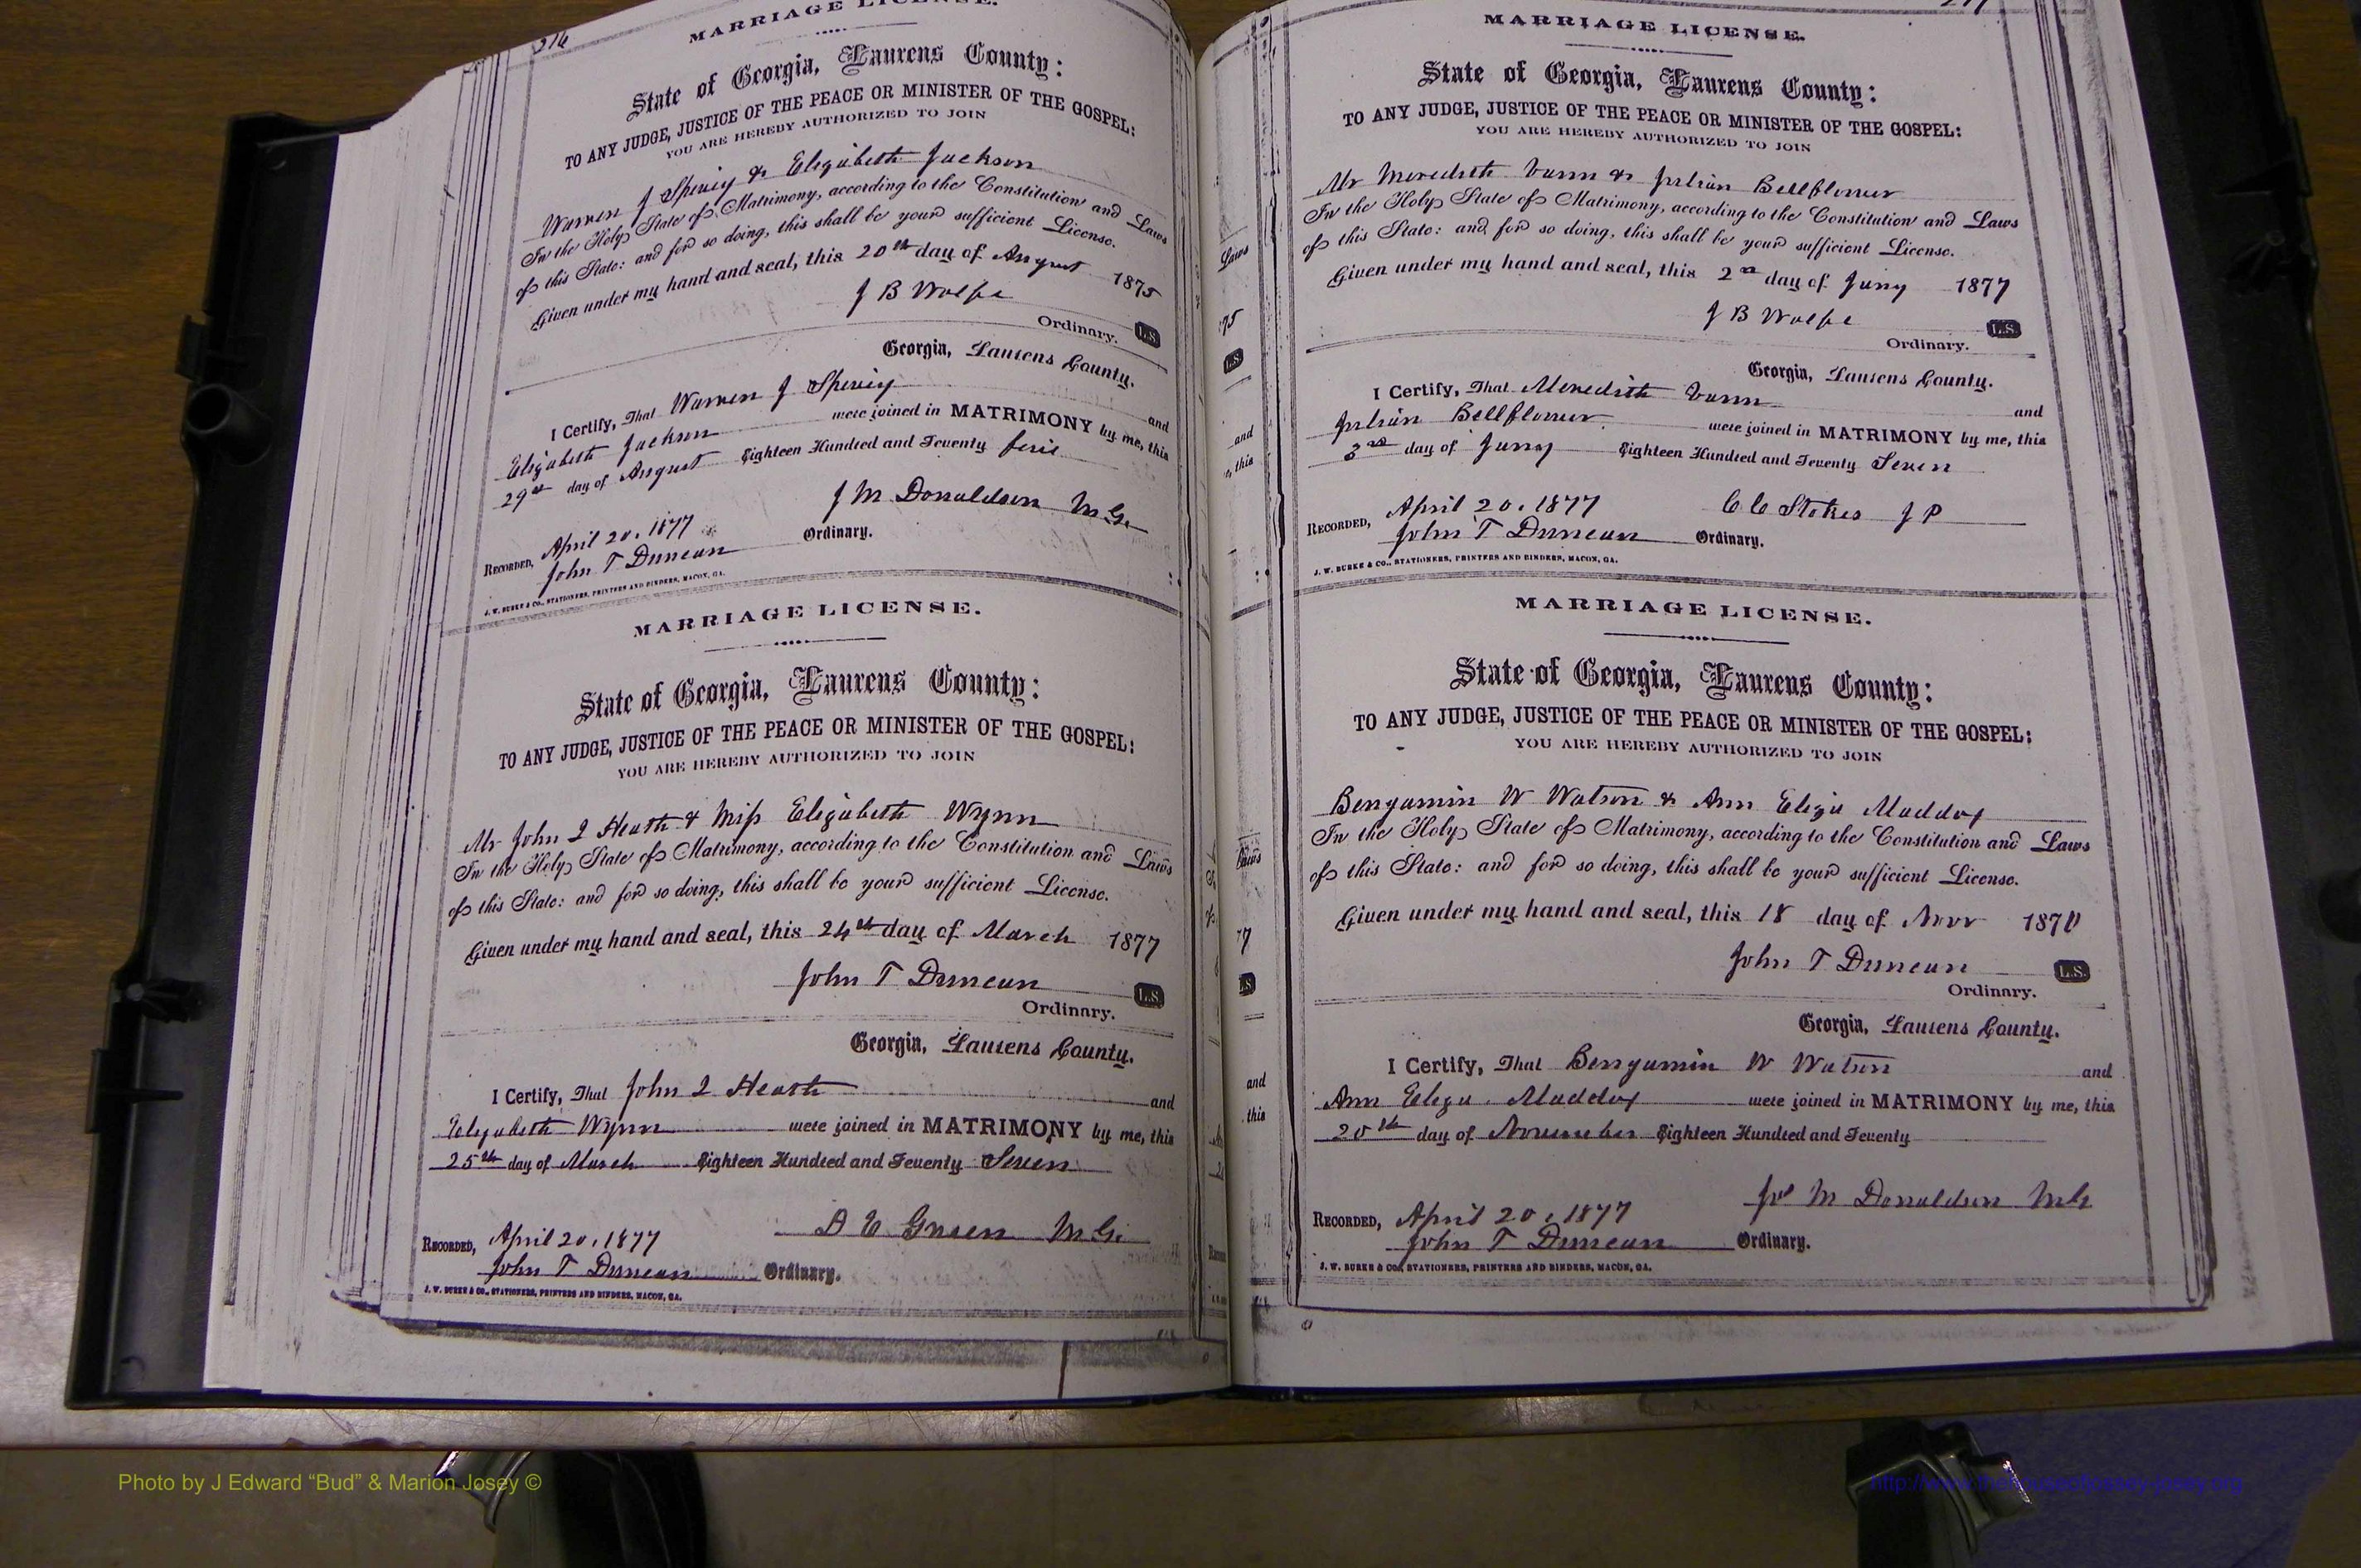 216
MARRIAGE LICENSE.
State of Georgia, Laurens County:
TO ANY JUDGE, JUSTICE OF THE PEACE OR MINISTER OF THE GOSPEL:
YOU ARE HEREBY AUTHORIZED TO JOIN
Warren J Spivey & Elizabeth Jackson
In the Holy State of Matrimony, according to the Constitution and Laws
of this State: and for so doing, this shall be your sufficient License.
Given under my hand and seal, this 20th day of August 1875
J B Wolfe
Ordinary. L.S.
Georgia, Laurens County.
I Certify, That Warren J Spivey and
Elizabeth Jackson were joined in MATRIMONY by me, this
29th day of August Eighteen Hundred and Seventy five
J M Donaldson M.G.
RECORDED, April 20, 1877
John T Duncan Ordinary.
J. W. BURKE & CO., STATIONERS, PRINTERS AND BINDERS, MACON, GA.
MARRIAGE LICENSE.
State of Georgia, Laurens County:
TO ANY JUDGE, JUSTICE OF THE PEACE OR MINISTER OF THE GOSPEL:
YOU ARE HEREBY AUTHORIZED TO JOIN
Mr John L Heath & Miss Elizabeth Wynn
In the Holy State of Matrimony, according to the Constitution and Laws
of this State: and for so doing, this shall be your sufficient License.
Given under my hand and seal, this 24th day of March 1877
John T Duncan L.S.
Ordinary.
Georgia, Laurens County.
I Certify, That John L Heath and
Elizabeth Wynn were joined in MATRIMONY by me, this
25th day of March Eighteen Hundred and Seventy Seven
D E Green M.G.
RECORDED, April 20, 1877
John T Duncan Ordinary.
J. W. BURKE & CO., STATIONERS, PRINTERS AND BINDERS, MACON, GA.
Laws
75
L.S.
and
, this
Laws
7
and
this
MARRIAGE LICENSE.
State of Georgia, Laurens County:
TO ANY JUDGE, JUSTICE OF THE PEACE OR MINISTER OF THE GOSPEL:
YOU ARE HEREBY AUTHORIZED TO JOIN
Mr Meredith Vann & Julian Bellflower
In the Holy State of Matrimony, according to the Constitution and Laws
of this State: and for so doing, this shall be your sufficient License.
Given under my hand and seal, this 2nd day of Jany 1877
J B Wolfe L.S.
Ordinary.
Georgia, Laurens County.
I Certify, That Meredith Vann and
Julian Bellflower were joined in MATRIMONY by me, this
3rd day of Jany Eighteen Hundred and Seventy Seven
C C Stokes J P
RECORDED, April 20, 1877
John T Duncan Ordinary.
J. W. BURKE & CO., STATIONERS, PRINTERS AND BINDERS, MACON, GA.
MARRIAGE LICENSE.
State of Georgia, Laurens County:
TO ANY JUDGE, JUSTICE OF THE PEACE OR MINISTER OF THE GOSPEL:
YOU ARE HEREBY AUTHORIZED TO JOIN
Benjamin W Watson & Ann Eliza Maddox
In the Holy State of Matrimony, according to the Constitution and Laws
of this State: and for so doing, this shall be your sufficient License.
Given under my hand and seal, this 18 day of Novr 1870
John T Duncan L.S.
Ordinary.
Georgia, Laurens County.
I Certify, That Benjamin W Watson and
Ann Eliza Maddox were joined in MATRIMONY by me, this
20th day of November Eighteen Hundred and Seventy
M Donaldson MG
RECORDED, April 20, 1877
John T Duncan Ordinary.
J. W. BURKE & CO., STATIONERS, PRINTERS AND BINDERS, MACON, GA.
Photo by J Edward “Bud” & Marion Josey ©